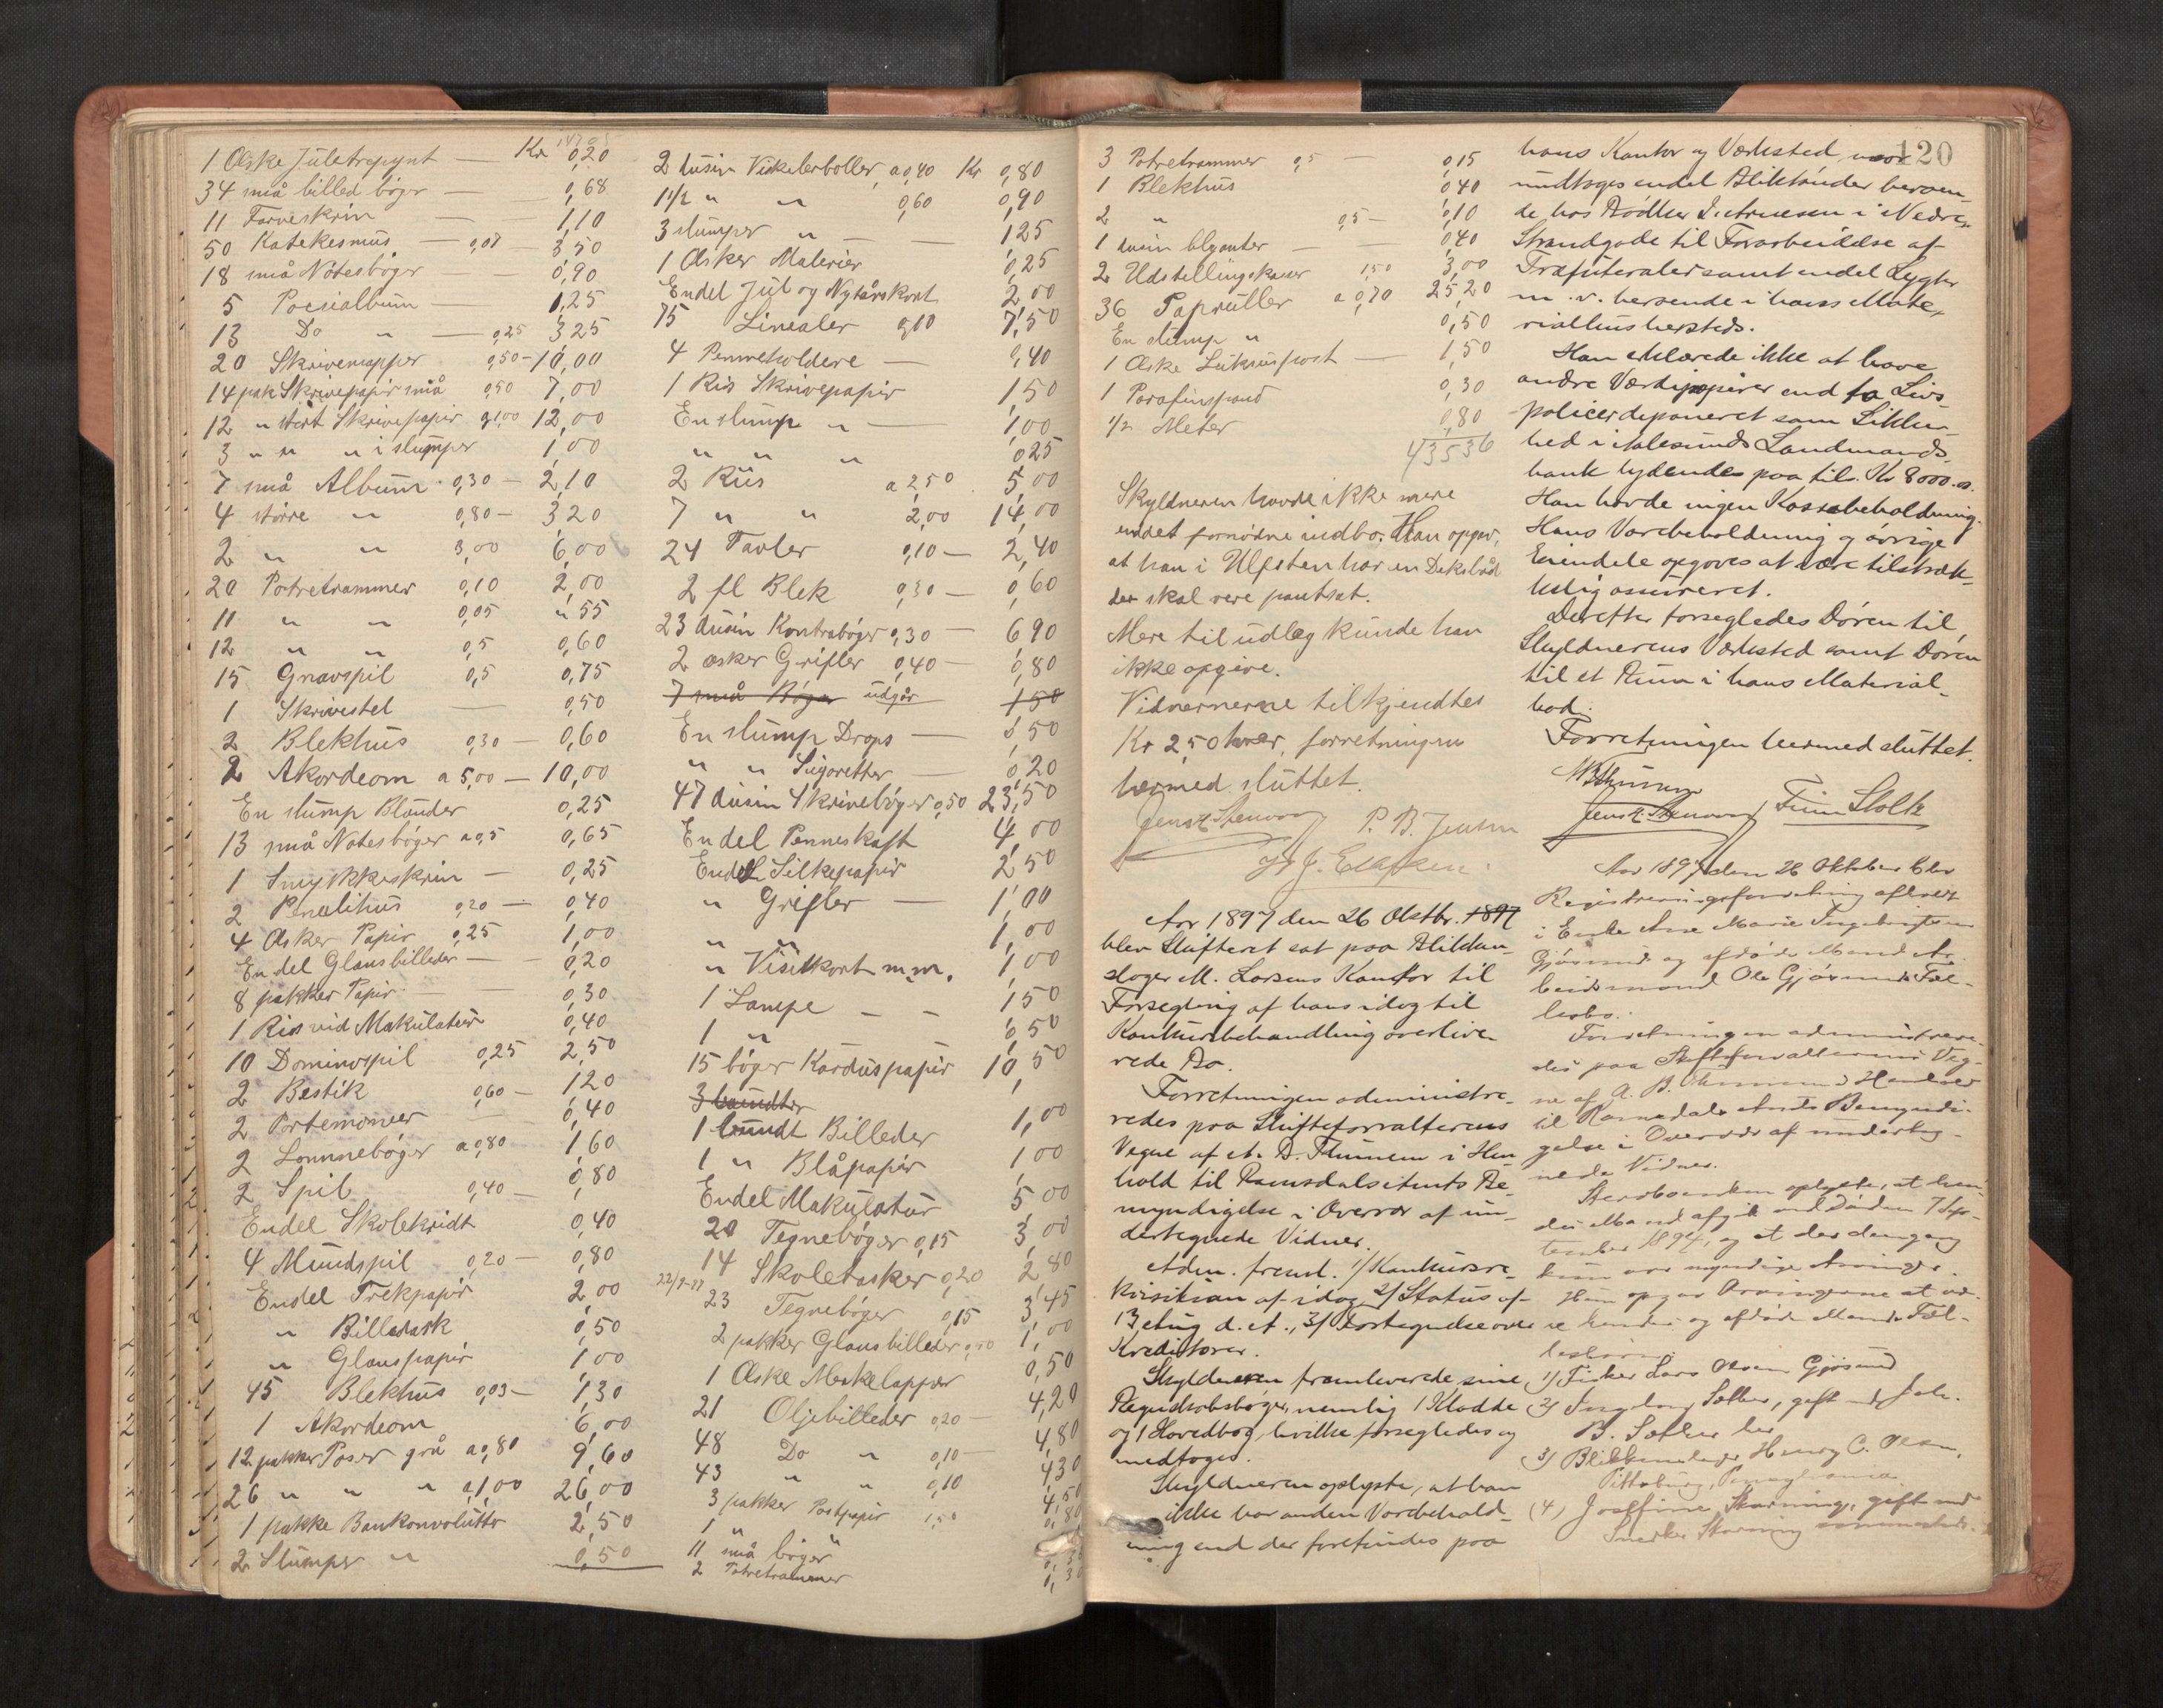 1 Æske Juletrepynt — Kr 0,20
34 små billed bøger — 0,68
11 Farveskrin — 1,10
50 Katekesmus — 0,07 — 3,50
18 små Notesbøger — 0,90
5 Poesialbum — 1,25
13 Do " — 0,25 3,25
20 Skrivemapper 0,50 — 10,00
14 pak Skrivepapir små 0,50 7,00
12 " stort Skrivepapir a 1,00 12,00
3 " " " i slumper 1,00
7 små Album 0,30 — 2,10
4 större " 0,80 — 3,20
2 " " 3,00 6,00
20 Potretrammer 0,10 2,00
11 " " 0,05 " 55
12 " " 0,5 0,60
15 Gnavspil 0,5 0,75
1 Skrivestel — 0,50
2 Blekhus 0,30 — 0,60
2 Akordeom a 5,00 — 10,00
En slump Blander 0,25
13 små Notesbøger a 0,5 0,65
1 Smykkeskrin — 0,25
2 Penalihus 0,20 — 0,40
4 Æsker Papir 0,25 1,00
En del Glansbilleder — 0,20
8 pakker Papir — 0,30
1 Ris vid Makulatur 0,40
10 Dominospil 0,25 2,50
2 Bestik 0,60 — 1,20
2 Portemoneer 0,40
2 Lommebøger a 0,80 1,60
2 Spil 0,40 — 0,80
Endel Skolekridt 0,40
4 Mundspil 0,20 — 0,80
Endel Trekpapir 2,00
" Billedark 0,50
" Glanspapir 1,00
45 Blekhus 0,03 — 1,30
1 Akordeom 6,00
12 pakker Poser grå a 0,80 9,60
26 " " " a 1,00 26,00
1 pakke Bankonvolutter 2,50
2 Slumper " 0,50
2 dusin Viskelerboller a 0,40 Kr 0,80
1 1/2 " " 0,60 0,90
3 slumper " — 1 25
1 Æsker Malerier 0,25
Endel Jul og Nytårskort 2,00
75 Linealer 0,10 7,50
4 Penneholdere — 0,40
1 Ris Skrivepapir 1 50
En slump " — 1,00
" " " 0 25
2 Riis a 2 50 5,00
7 " " 2,00 14,00
24 Tavler 0,10 — 2,40
2 fl Blek 0,30 — 0,60
23 dusin Kontrabøger 0,30 — 6 90
2 æsker Grifler 0,40 — 0,80
7 små Bøger udgår 1 50
En slump Drops — 0,50
" " Sigaretter — 0,20
47 dusin Skrivebøger 0,50 23,50
Endel Penneskaft 4,00
Endel Silkepapir 2 50
" Grifler — 1,00
" " 1,00
" Visitkort m.m. 1,00
1 Lampe — — 1 50
1 " 0,50
15 bøger Karduspapir 10,50
3 bundter
1 bundt Billeder 1,00
1 " Blåpapir 1,00
Endel Makulatur 5,00
20 Tegnebøger 0,15 3,00
14 Skoletasker 0,20 2,80
23 Tegnebøger 0,15 3,45
2 pakker Glansbilleder 0,50 1,00
1 Æske Merkelapper 0,50
21 Oljebilleder 0,20 — 4,20
48 Do " 0,10 — 4,80
43 " " 0,10 4,30
3 pakker Postpapir 1,50 4,50
1 " "
11 små bøger
2 Potretrammer
120
3 Potretrammer 0,5 — 0,15
1 Blekhus 0,40
2 " 0,5 — 0,10
1 dusin blyanter — 0,40
2 Udstillingskasser 1,50 3,00
36 Papruller a 0,70 25,20
En slump " 0,50
1 Æske Luksuspost — 1,50
1 Parafinspand 0,30
1/2 Meter 0,80
435 36
Skyldneren havde ikke mere
undet fornødne indbo. Han opgav,
at han i Ulfsten har en Deksbåd
der skal vere pantsat.
Mere til udlæg kunde han
ikke opgive.
Vidnernerne tilkjendtes
Kr 2,50 hver, forretningen
hermed sluttet.
P. B. Jensen
Aar 1897 den 26 Oktbr. 1897
blev Skifteret sat paa Blikken-
slager M. Larsens Kontor til
Forsegling af hans idag til
Konkursbehandling overleve-
rede Bo.
Forretningen administre-
redes paa Skifteforvalterens
Vegne af A. B. Thunem i Hen-
hold til Romsdals Amts Be-
myndigelse i Overvær af un-
dertegnede Vidner.
Adm. freml. 1/ Konkursre-
kvisition af idag 2/ Status af
13 Aug d. A., 3/ Fortegnelse over
Kreditorer.
Skyldneren fremleverede sine
Regnskabsbøger, nemlig 1 Kladde
og 1 Hovedbog, hvilke forsegledes og
medtoges.
Skyldneren oplyste, at han
ikke har anden Varebehold-
ning end der forefindes paa
hans Kontor og Værksted, naar
undtages endel Bliktønder beroen-
de hos Bødker I. Arnesen i Nedre
Strandgade til Forarbeidelse af
Træfuteraler samt endel Lygter
m. v. beroende i hans Mate-
rialhus hersteds.
Han erklærede ikke at have
andre Værdipapirer end to Livs-
policer deponeret som Sikker-
hed i Aalesunds Landmands-
bank lydendes paa tils. Kr 8000.00.
Han havde ingen Kassabeholdning.
Hans Varebeholdning og øvrige
Eiendele opgaves at være tilstræk-
kelig assureret.
Derefter forsegledes Døren til
Skyldnerens Værksted samt Døren
til et Rum i hans Material-
bod.
Forretningen hermed sluttet.
Finn Stoltz
Aar 1897 den 26 Oktober blev
Registreringsforretning afholdt
i Enke Ane Marie Ingebrigtsen
Gjøsund og afdøde Mand Ar-
beidsmand Ole Gjøsunds Fæl-
lesbo.
Forretningen administrere-
des paa Skifteforvalterens Veg-
ne af A. B. Thunem i Henhold
til Romsdals Amts Bemyndi-
gelse i Overvær af underteg-
nede Vidner.
Sterboenken oplyste, at hen-
des Mand afgik ved Døden 7 Sep-
tember 1894, og at der dengang
kun var myndige Arvinger.
Hun opgav Arvingerne at væ-
re hendes og afdøde Mands Fæl-
lesbørn:
1) Fisker Lars Olsen Gjøsund
2) Ingeborg Sæther, gift med Joh.
B. Sæther her
3) Blikkenslager Henry C. Olsen,
Pittsburg, Pensylvania
(4) Josefine Skorning, gift med
Snedker Skorning